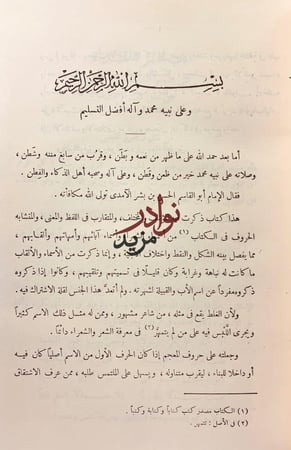 بسم الله الرحمن الرحيم
وعلى نبيه محمد وآله أفضل التسليم
أما بعد حمد الله على ما ظهر من نعمه وبَطَن، وقرُب من سابغ مننه وشَطَن،
وصلاته على نبيه محمد خير من ظعن وقَطَن، وعلى آله وصحبه أهل الذكاء والفِطَن.
فقال الإمام أبو القاسم الحسن بن بشر الآمدى تولى الله مكافأته.
هذا كتاب ذكرت المختلف، والمتقارب فى اللفظ والمعنى، والمتشابه
الحروف فى الكتاب (١) من أسماء آبائهم وأمهاتهم وألقابهم،
مما يفصل بينه الشكل والنقط واختلاف، وإنما ذكرت من الأسماء والألقاب
ما كانت له نباهة وغرابة وكان قليلًا فى تسميتهم وتلقيبهم، وكانوا إذا ذكروه
ذكروه مفردًا عن اسم الأب والقبيلة لشهرته. ولم أتعدَّ هذا الجنس لقلة الاشتراك فيه.
ولأن الغلط يقع فى مثله، من شاعر مشهور، ومن له مثل ذلك الاسم كثيراً
ويجرى اللَّبْس فيه على من لم يتمهَّر (٢) فى معرفة الشعر والشعراء دائمًا.
وجعلته على حروف المعجم إذا كان الحرف الأول من الاسم أصليا كان فيسه
أو داخلا للبناء، ليقرب متناوله، ويسهل على الملتمس طلبه، ممن عرف الاشتقاق
(١) الكتاب مصدر كتب كتاباً وكتابة وكتباً.
(٢) فى الأصل: تتمهر.
نوادر
مزيد